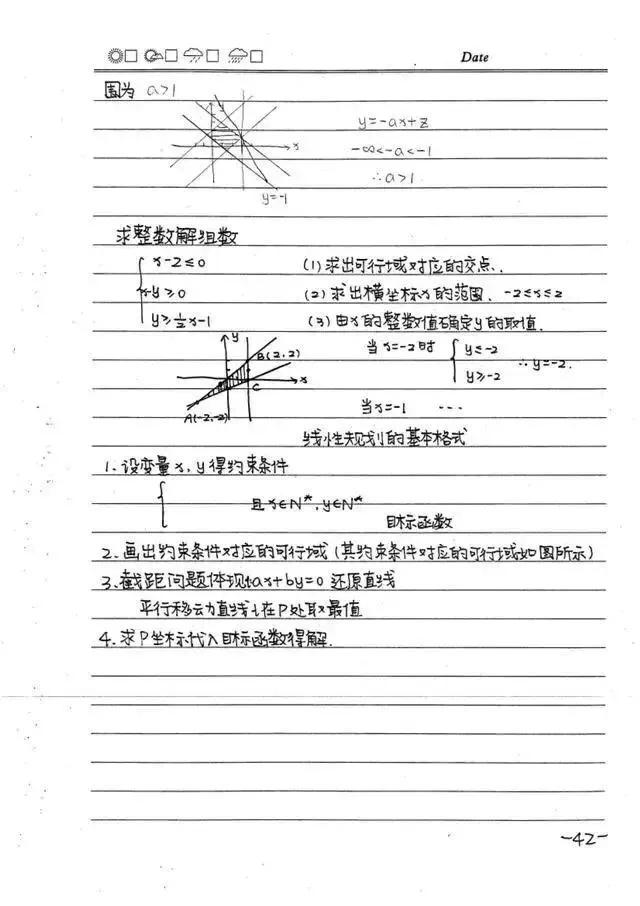 Date
因为 a>1
y
x
y=-ax+z
-∞<-a<-1
∴a>1
y=-1
求整数解组数
x-2≤0 (1)求出可行域对应的交点.
x-y≥0 (2)求出横坐标x的范围. -2≤x≤2
y≥½x-1 (3)由x的整数值确定y的取值.
y
B(2,2)
x
C
A(-2,-2)
当x=-2时 { y≤-2
y≥-2 ∴y=-2.
当x=-1 ...
线性规划的基本格式
1.设变量x,y得约束条件
{ 且x∈N*,y∈N*
目标函数
2.画出约束条件对应的可行域(其约束条件对应的可行域如图所示)
3.截距问题体现ax+by=0 还原直线
平行移动直线l在P处取最值
4.求P坐标代入目标函数得解.
-42-